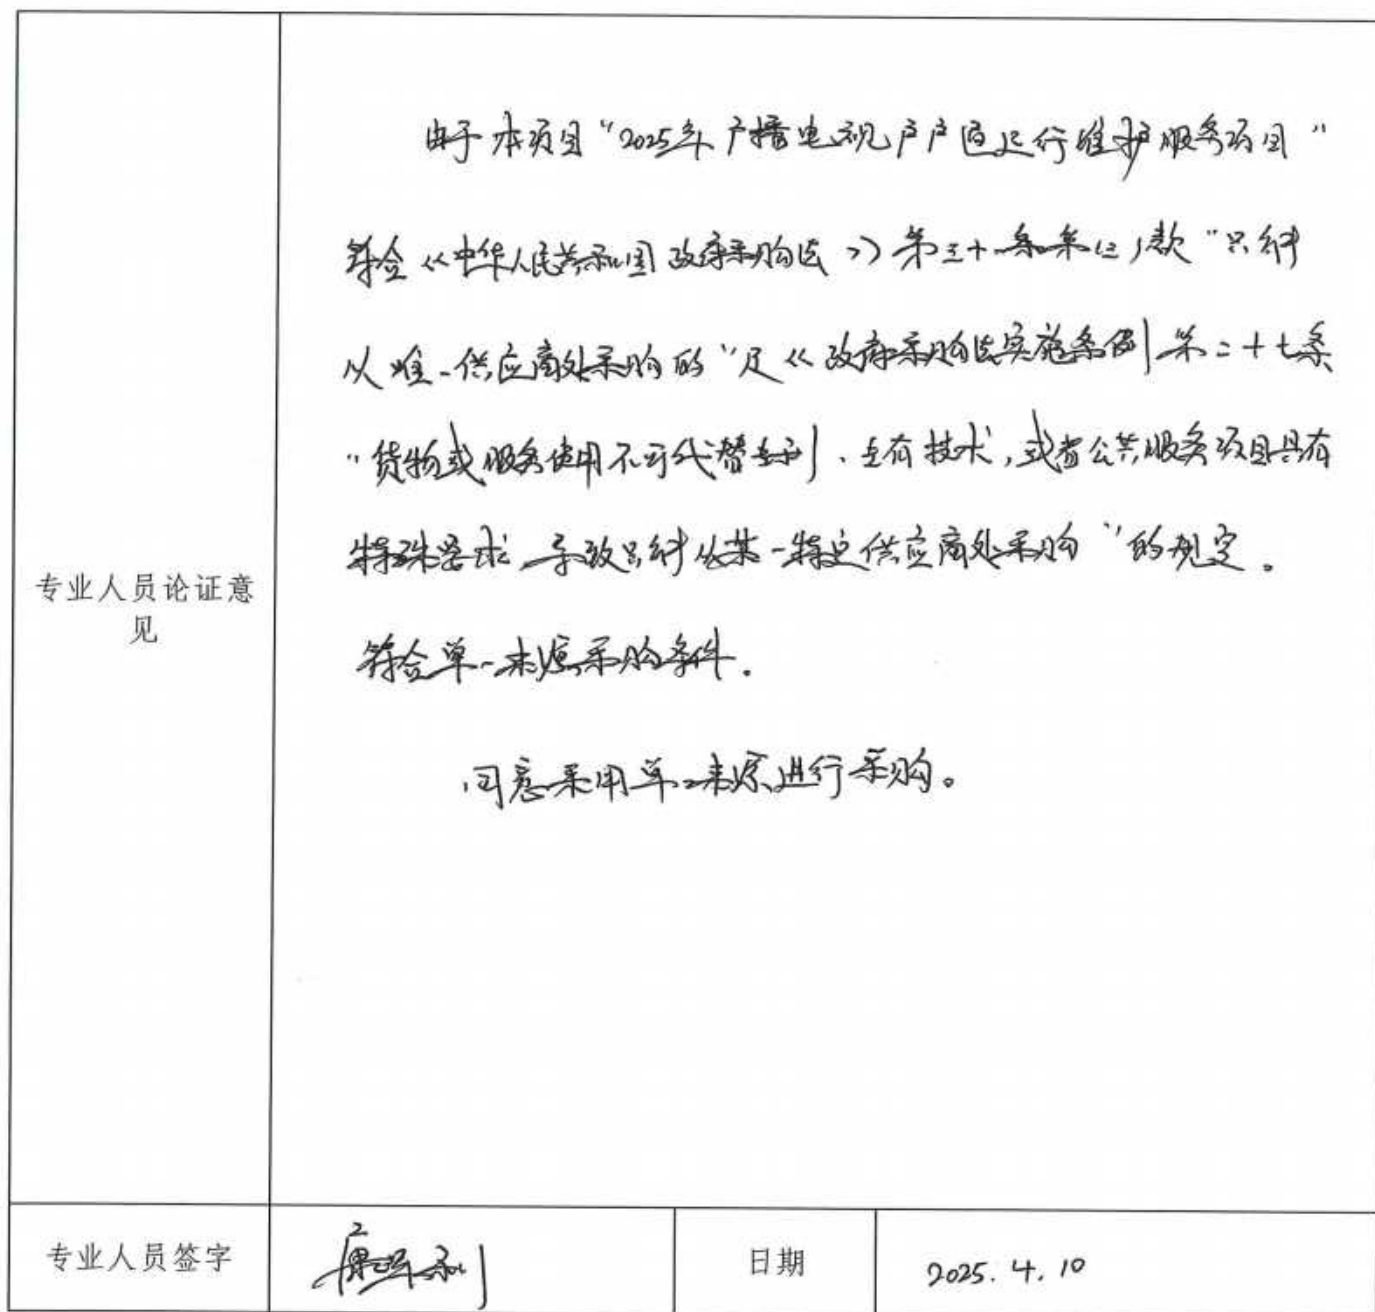 由于本项目“2025年广播电视户户通运行维护服务项目”
符合《中华人民共和国政府采购法》第三十一条第(一)款“只能
从唯一供应商处采购的”及《政府采购法实施条例第二十七条
“货物或服务使用不可代替专利、专有技术,或者公共服务项目具有
特殊要求,导致只能从某一特定供应商处采购”的规定。
专业人员论证意
见
符合单一来源采购条件.
同意采用单一来源进行采购。
专业人员签字
日期
2025.4.10